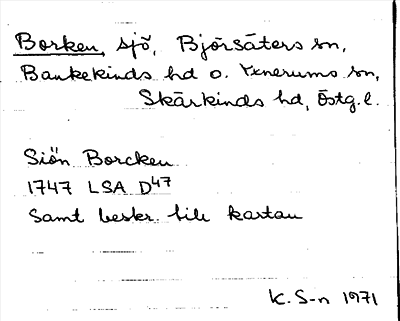 Borken, sjö, Björsäters sn,
Bankekinds hd o. Yxnerums sn,
Skärkinds hd, Östg.l.
Siön Borcken
1747 LSA D47
Samt beskr. till kartan
K. S-n 1971